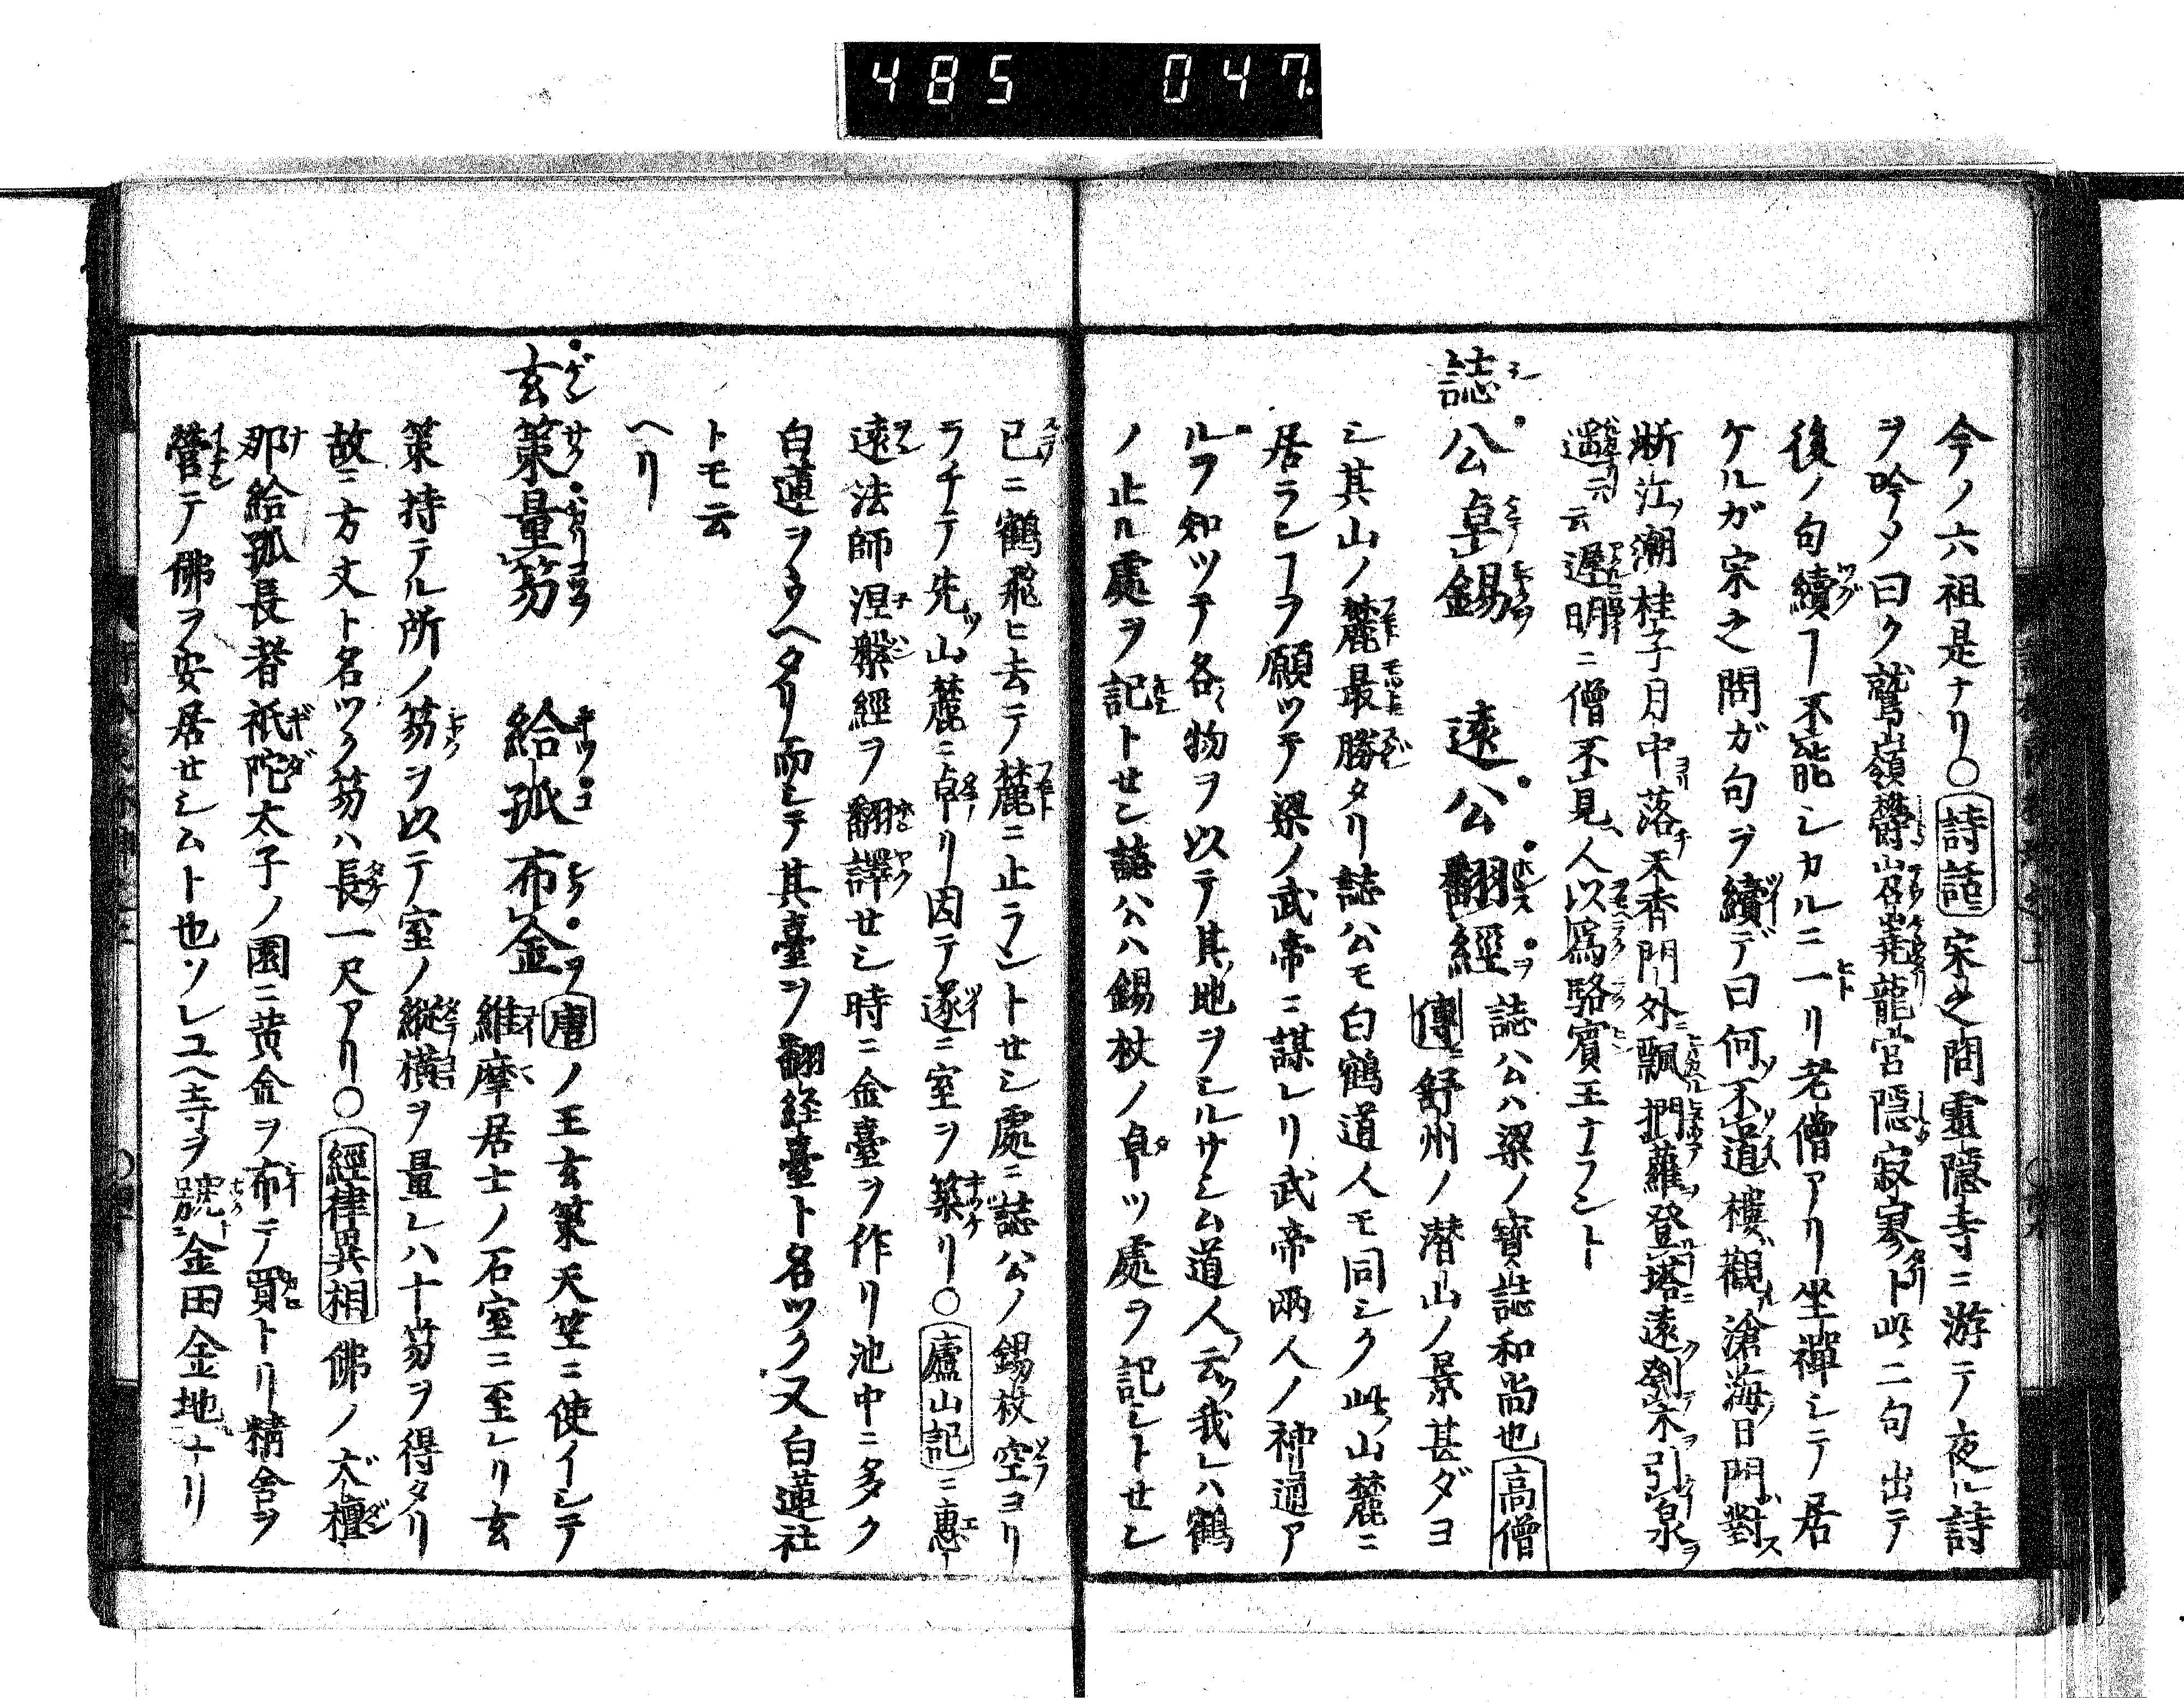 485 047.
今ノ六祖是ナリ○詩話宋之問靈隱寺ニ游テ夜ル詩
ヲ吟メ曰ク鷲嶺欝岧嶤龍宮隱寂寥ト此二句出テ
後ノ句續ヿ不能シカルニ一リ老僧アリ坐禪シテ居
ケルガ宋之問ガ句ヲ續デ曰何不道樓觀滄海日門對
浙江潮桂子月中落天香門外飄捫蘿登塔遠刳木引泉
遥云遲明ニ僧不見人以爲駱賓王ナラント
誌公卓錫 遠公翻經 誌公ハ梁ノ寶誌和尚也高僧
傳ニ舒州ノ潜山ノ景甚ダヨ
シ其山ノ麓最勝タリ誌公モ白鶴道人モ同シク此山麓ニ
居ランヿヲ願ツテ梁ノ武帝ニ謀レリ武帝兩人ノ神通ア
ルヲ知ツテ各物ヲ以テ其地ヲシルサシム道人云ク我レハ鶴
ノ止ル處ヲ記トセン誌公ハ錫杖ノ卓ツ處ヲ記シトセン
已ニ鶴飛ヒ去テ麓ニ止ラントセシ處ニ誌公ノ錫杖空ヨリ
ヲチテ先ツ山麓ニ卓リ因テ遂ニ室ヲ築リ○廬山記ニ惠
遠法師涅槃經ヲ翻譯セシ時ニ金臺ヲ作リ池中ニ多ク
白蓮ヲウヘタリ而シテ其臺ヲ翻経臺ト名ツク又白蓮社
トモ云
ヘリ
玄策量笏 給孤布金 唐ノ王玄策天竺ニ使イシテ
維摩居士ノ石室ニ至レリ玄
策持テル所ノ笏ヲ以テ室ノ縱横ヲ量レハ十笏ヲ得タリ
故ニ方丈ト名ツク笏ハ長一尺アリ○經律異相佛ノ大檀
那給孤長者祇陀太子ノ園ニ黄金ヲ布テ買トリ精舎ヲ
營テ佛ヲ安居セシムト也ソレユヘ寺ヲ號金田金地ナリ